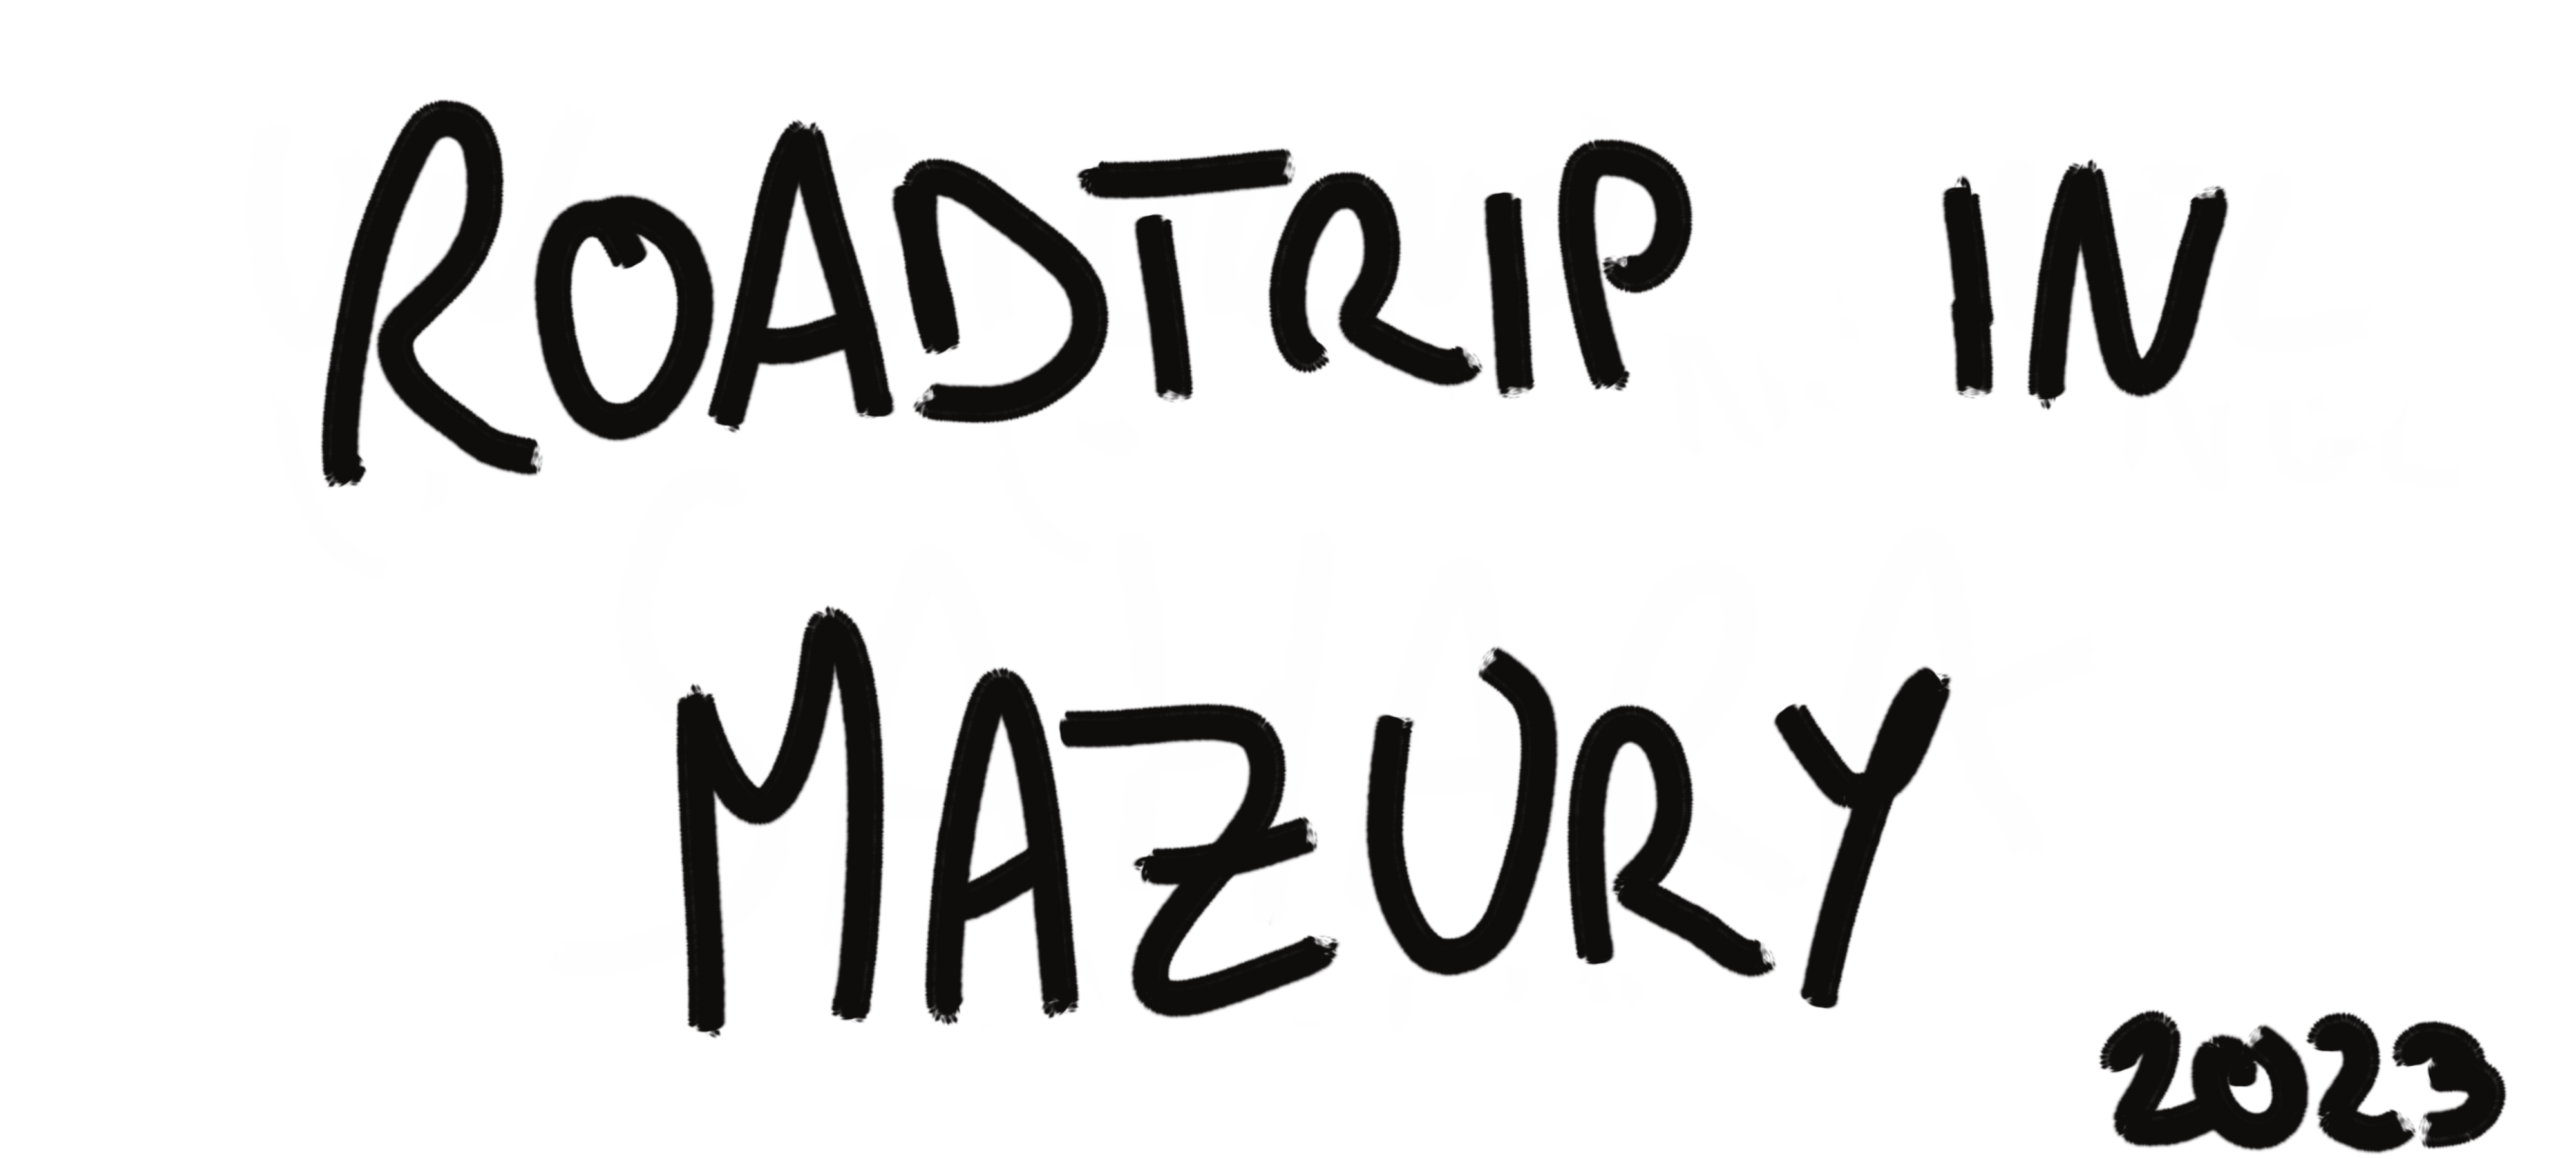 ROADTRIP IN
MAZURY
2023